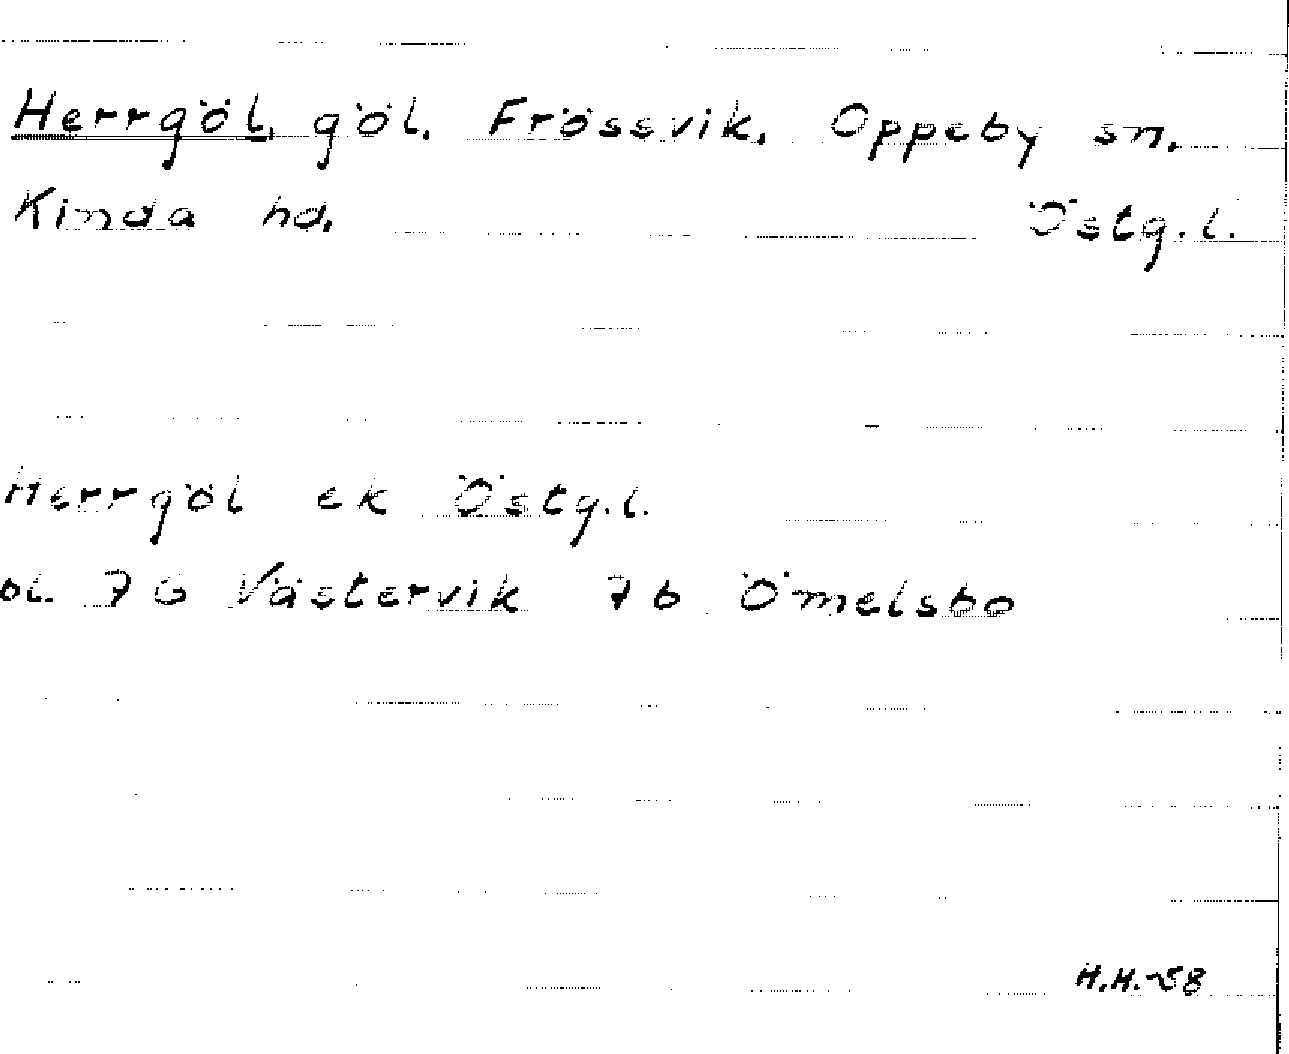 Herrgöl, göl. Frössvik, Oppeby sn.
Kinda hd. Östg.l.
Herrgöl ek Östg.l.
bl. 7 G Västervik 7 b Ömelsbo
H.H.-58